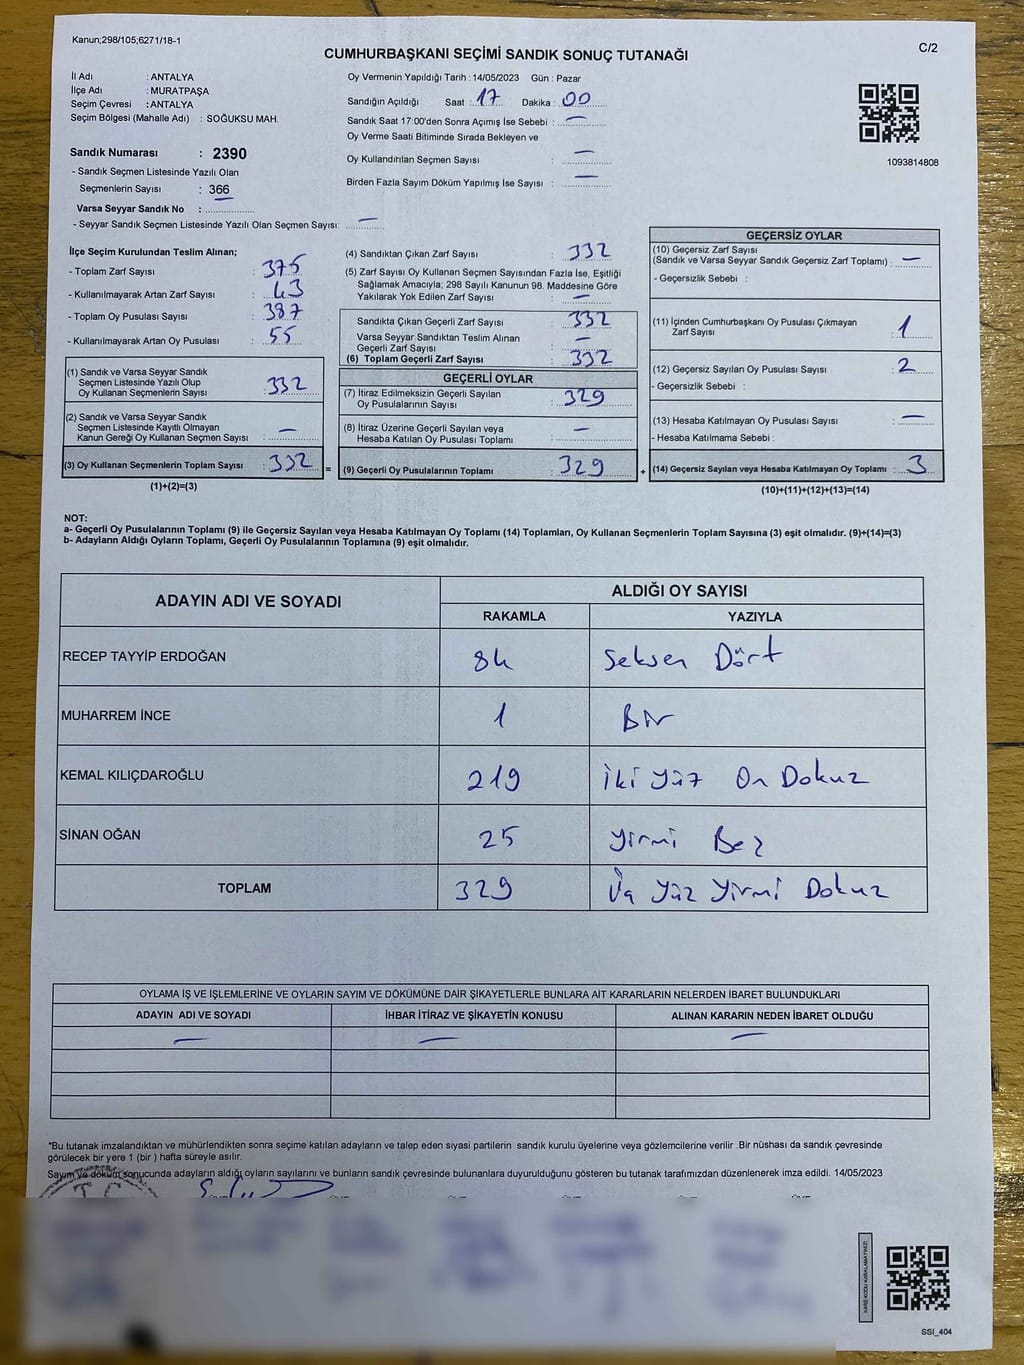 Kanun;298/105;6271/18-1
C/2
CUMHURBAŞKANI SEÇİMİ SANDIK SONUÇ TUTANAĞI
İl Adı : ANTALYA
İlçe Adı : MURATPAŞA
Seçim Çevresi : ANTALYA
Seçim Bölgesi (Mahalle Adı) : SOĞUKSU MAH.
Sandık Numarası : 2390
- Sandık Seçmen Listesinde Yazılı Olan
Seçmenlerin Sayısı : 366
Varsa Seyyar Sandık No :
- Seyyar Sandık Seçmen Listesinde Yazılı Olan Seçmen Sayısı: —
Oy Vermenin Yapıldığı Tarih :14/05/2023 Gün : Pazar
Sandığın Açıldığı Saat : 17 Dakika : 00
Sandık Saat 17:00'den Sonra Açımış İse Sebebi : —
Oy Verme Saati Bitiminde Sırada Bekleyen ve
Oy Kullandırılan Seçmen Sayısı : —
Birden Fazla Sayım Döküm Yapılmış İse Sayısı : —
1093814808
İlçe Seçim Kurulundan Teslim Alınan;
- Toplam Zarf Sayısı : 375
- Kullanılmayarak Artan Zarf Sayısı : 43
- Toplam Oy Pusulası Sayısı : 387
- Kullanılmayarak Artan Oy Pusulası : 55
(1) Sandık ve Varsa Seyyar Sandık
Seçmen Listesinde Yazılı Olup
Oy Kullanan Seçmenlerin Sayısı : 332
(2) Sandık ve Varsa Seyyar Sandık
Seçmen Listesinde Kayıtlı Olmayan
Kanun Gereği Oy Kullanan Seçmen Sayısı : —
(3) Oy Kullanan Seçmenlerin Toplam Sayısı : 332
(1)+(2)=(3)
=
(4) Sandıktan Çıkan Zarf Sayısı : 332
(5) Zarf Sayısı Oy Kullanan Seçmen Sayısından Fazla İse, Eşitliği
Sağlamak Amacıyla; 298 Sayılı Kanunun 98. Maddesine Göre
Yakılarak Yok Edilen Zarf Sayısı : —
Sandıkta Çıkan Geçerli Zarf Sayısı : 332
Varsa Seyyar Sandıktan Teslim Alınan
Geçerli Zarf Sayısı : —
(6) Toplam Geçerli Zarf Sayısı : 332
GEÇERLİ OYLAR
(7) İtiraz Edilmeksizin Geçerli Sayılan
Oy Pusulalarının Sayısı : 329
(8) İtiraz Üzerine Geçerli Sayılan veya
Hesaba Katılan Oy Pusulası Toplamı : —
(9) Geçerli Oy Pusulalarının Toplamı : 329
+
GEÇERSİZ OYLAR
(10) Geçersiz Zarf Sayısı
(Sandık ve Varsa Seyyar Sandık Geçersiz Zarf Toplamı) : —
- Geçersizlik Sebebi :
(11) İçinden Cumhurbaşkanı Oy Pusulası Çıkmayan
Zarf Sayısı : 1
(12) Geçersiz Sayılan Oy Pusulası Sayısı : 2
- Geçersizlik Sebebi :
(13) Hesaba Katılmayan Oy Pusulası Sayısı : —
- Hesaba Katılmama Sebebi :
(14) Geçersiz Sayılan veya Hesaba Katılmayan Oy Toplamı : 3
(10)+(11)+(12)+(13)=(14)
NOT:
a- Geçerli Oy Pusulalarının Toplamı (9) ile Geçersiz Sayılan veya Hesaba Katılmayan Oy Toplamı (14) Toplamları, Oy Kullanan Seçmenlerin Toplam Sayısına (3) eşit olmalıdır. (9)+(14)=(3)
b- Adayların Aldığı Oyların Toplamı, Geçerli Oy Pusulalarının Toplamına (9) eşit olmalıdır.
ADAYIN ADI VE SOYADI
ALDIĞI OY SAYISI
RAKAMLA YAZIYLA
RECEP TAYYİP ERDOĞAN 84 Seksen Dört
MUHARREM İNCE 1 Bir
KEMAL KILIÇDAROĞLU 219 İki yüz On Dokuz
SİNAN OĞAN 25 yirmi Beş
TOPLAM 329 Üç yüz Yirmi Dokuz
OYLAMA İŞ VE İŞLEMLERİNE VE OYLARIN SAYIM VE DÖKÜMÜNE DAİR ŞİKAYETLERLE BUNLARA AİT KARARLARIN NELERDEN İBARET BULUNDUKLARI
ADAYIN ADI VE SOYADI İHBAR İTİRAZ VE ŞİKAYETİN KONUSU ALINAN KARARIN NEDEN İBARET OLDUĞU
— — —
*Bu tutanak imzalandıktan ve mühürlendikten sonra seçime katılan adayların ve talep eden siyasi partilerin sandık kurulu üyelerine veya gözlemcilerine verilir .Bir nüshası da sandık çevresinde
görülecek bir yere 1 (bir ) hafta süreyle asılır.
Sayım ve döküm sonucunda adayların aldığı oyların sayılarını ve bunların sandık çevresinde bulunanlara duyurulduğunu gösteren bu tutanak tarafımızdan düzenlenerek imza edildi. 14/05/2023
T.C.
KARE KODU KARALAMAYINIZ!
SSİ_404